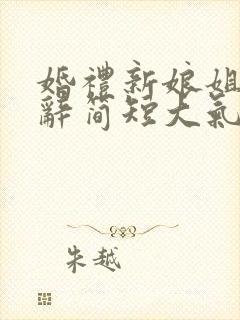 婚禮新娘姐
辭簡短大氣
朱越